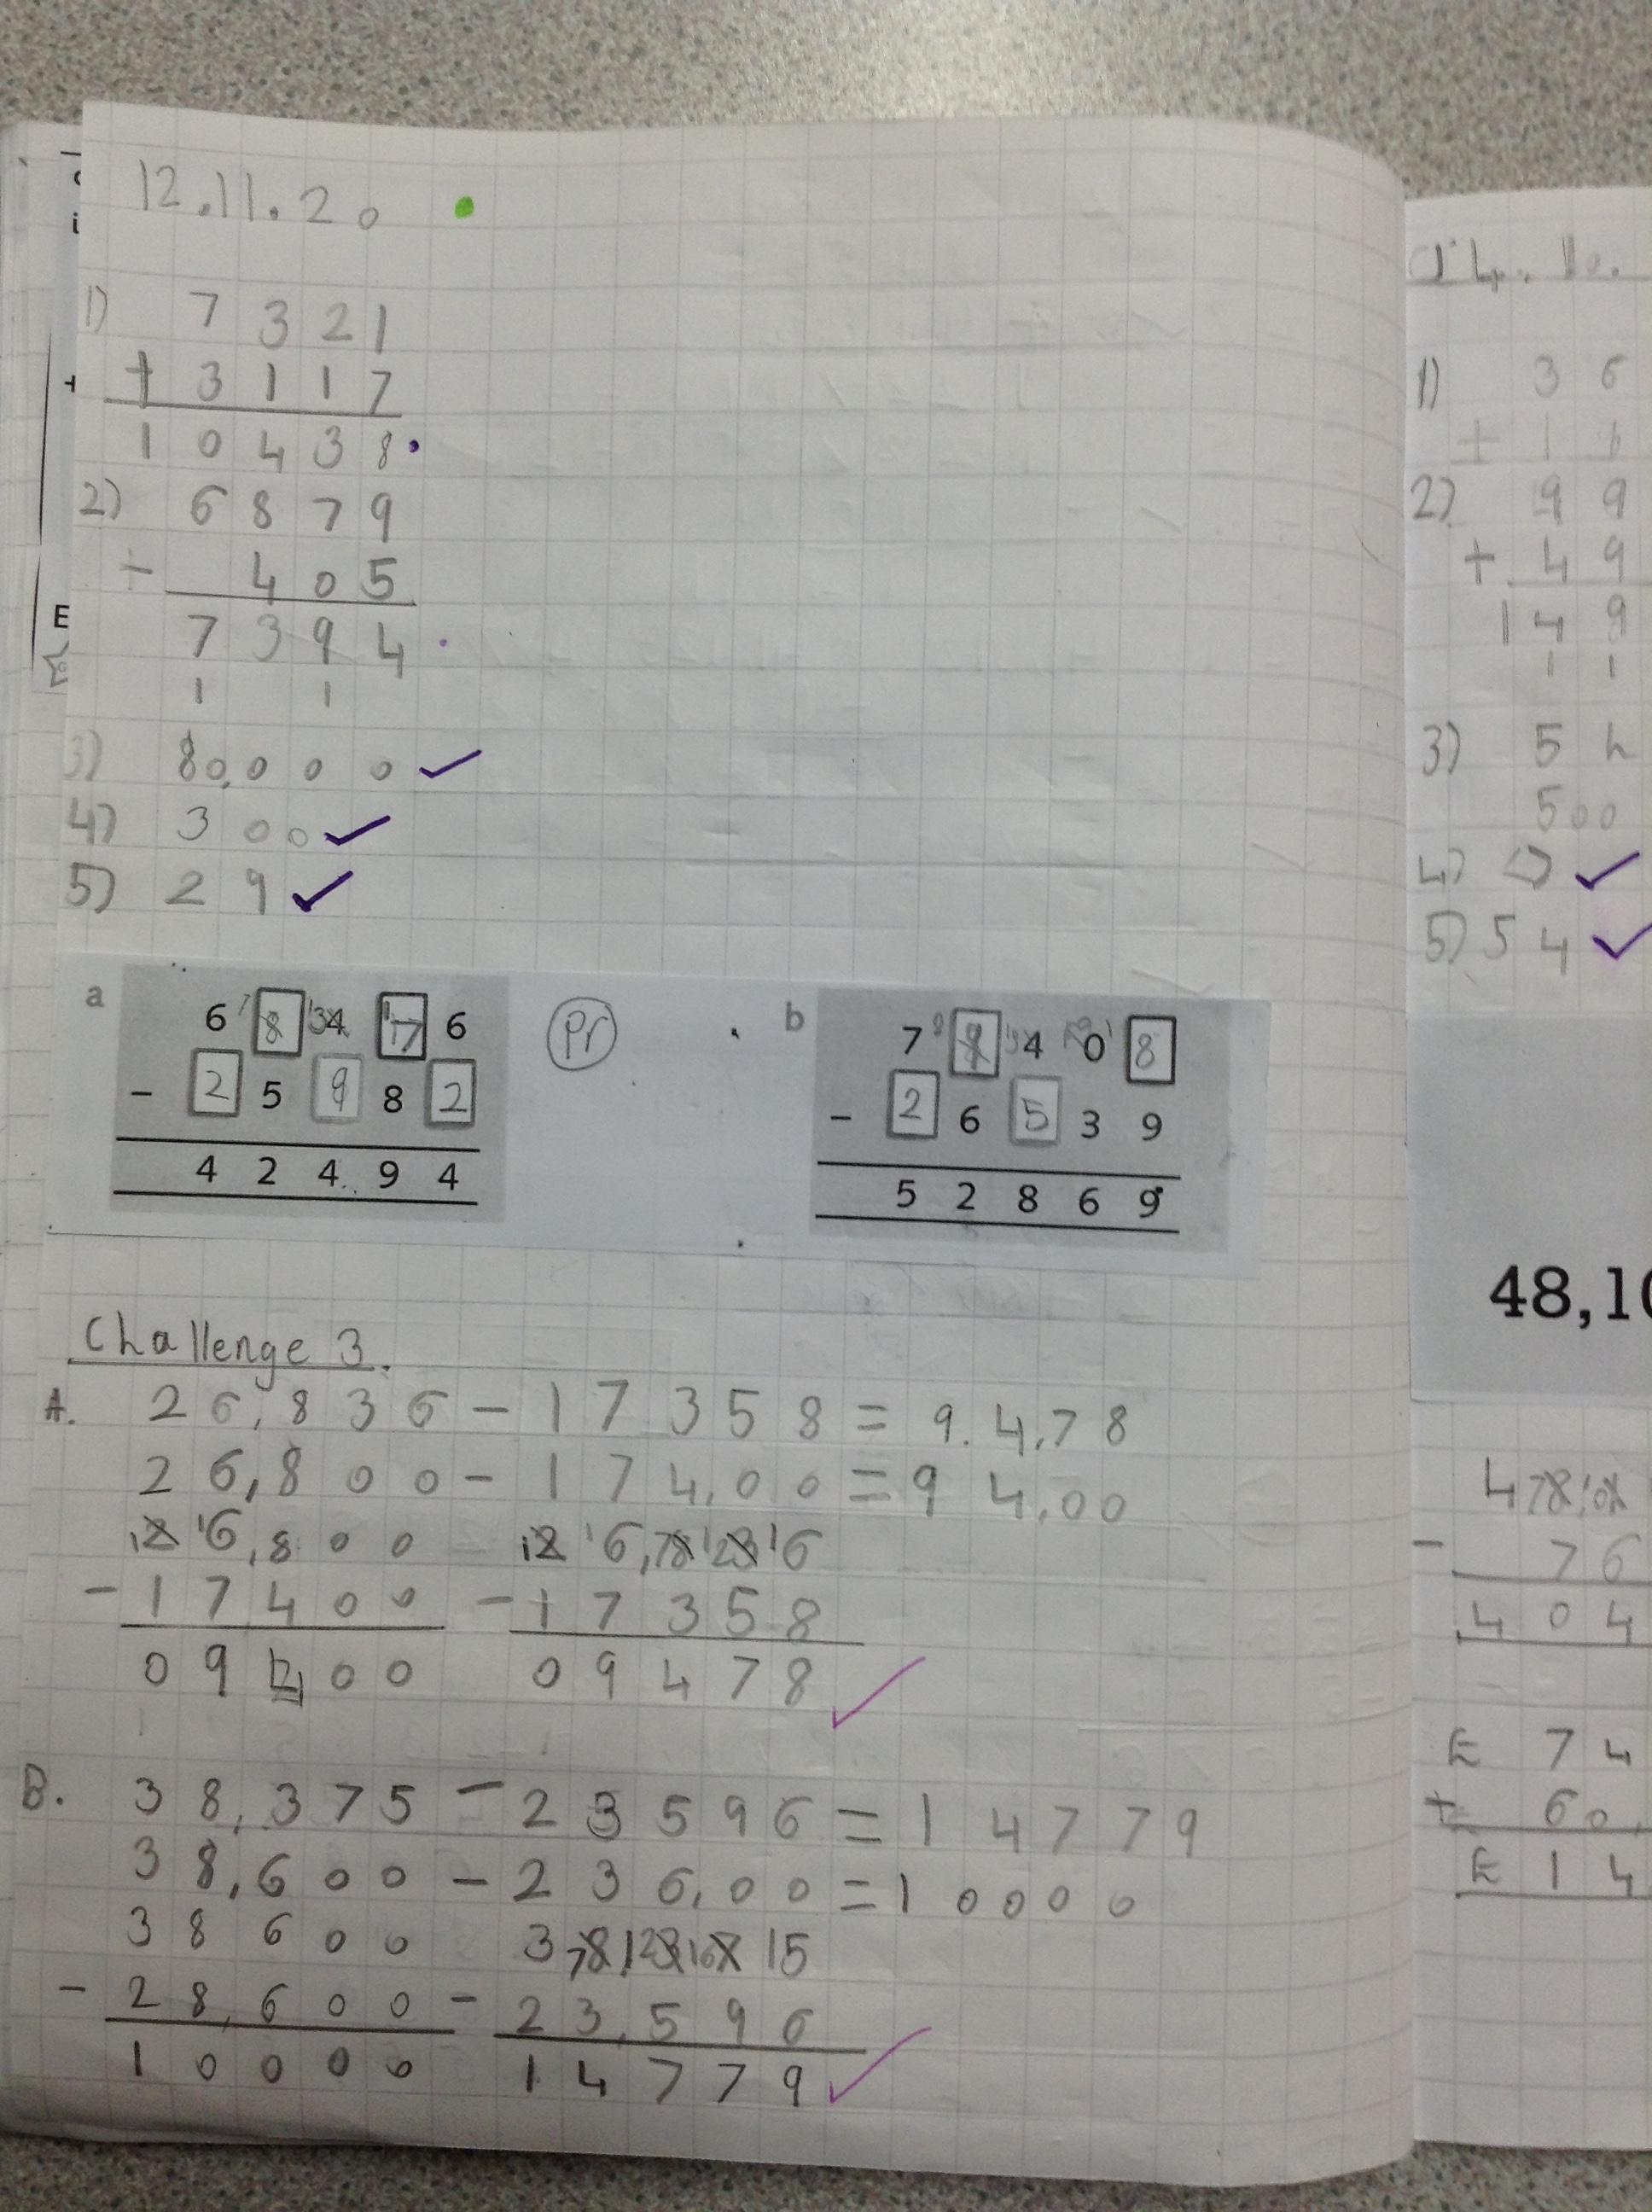 12.11.20
1) 7 3 2 1
+ 3 1 1 7
1 0 4 3 8
2) 6 8 7 9
+ 4 0 5
7 3 9 4
1 1
3) 80,000
4) 300
5) 29
a
6 8 4 17 6
- 2 5 9 8 2
4 2 4 9 4
Pr
b
7 9 4 0 8
- 2 6 5 3 9
5 2 8 6 9
Challenge 3.
A. 26,836 - 17358 = 9.4,78
26,800 - 174,00 = 94,00
12 16,800 12 16,78 123 16
- 17400 - 17358
09400 09478
B. 38,375 - 23596 = 14779
38,600 - 236,00 = 10000
38600 3 15
- 28,600 - 23,596
10000 14779
1) 3 6
+ 1 1
2) 9 9
+ 4 9
1 4 9
1 1
3) 5
500
4)
5) 54
48,10
4
- 7 6
4 0 4
E 7 4
+ 6 0,
E 1 4